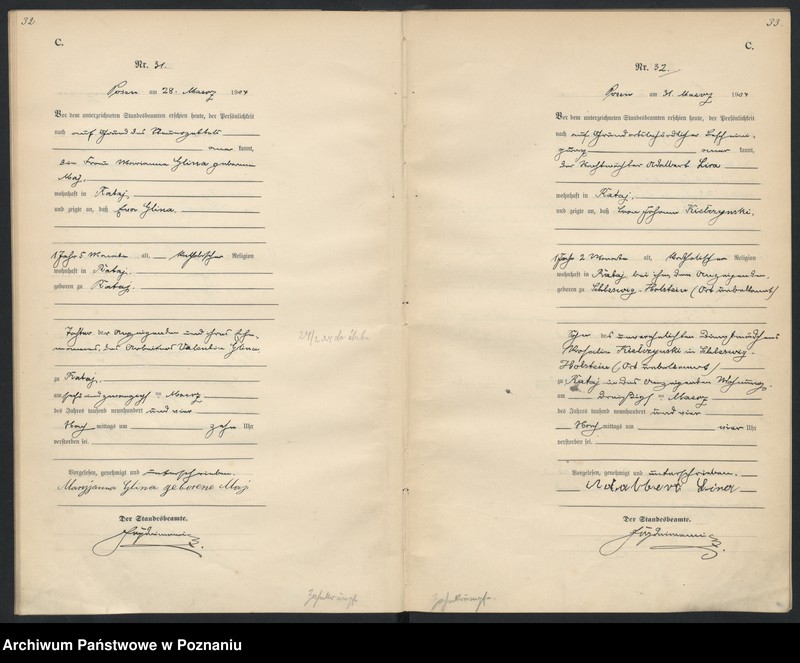 32
C.
Nr. 31.
Posen am 28. Maerz 1904
Vor dem unterzeichneten Standesbeamten erschien heute, der Persönlichkeit
nach auf Grund des
kannt,
die Frau Marianna Glina geborene
Maj,
wohnhaft in Rataj,
und zeigte an, daß Ewa Glina,
1 Jahr 5 Monate alt, katholischer Religion
wohnhaft in Rataj,
geboren zu Rataj,
Tochter der Anzeigenden und ihres Ehe-
mannes, des Arbeiters Valentin Glina
zu Rataj,
am sechsundzwanzigsten Maerz
des Jahres tausend neunhundert und vier
Nachmittags um zehn Uhr
verstorben sei.
Vorgelesen, genehmigt und unterschrieben.
Maryjanna Glina geborene Maj
Der Standesbeamte.
Zahnkrämpfe
33
C.
Nr. 32.
Posen am 31. Maerz 1904
Vor dem unterzeichneten Standesbeamten erschien heute, der Persönlichkeit
nach auf Grund ortsbehördlicher Beschei-
gung kannt,
der Nachtwächter Adalbert Lira
wohnhaft in Rataj,
und zeigte an, daß Leon Johann Kielczynski,
1 Jahr 2 Monate alt, katholischer Religion
wohnhaft in Rataj bei ihm, dem Anzeigenden,
geboren zu Schleswig-Holstein (Ort unbekannt)
Sohn des unverehelichten Dienstmädchens
Kielczynski in Schleswig-
Holstein (Ort unbekannt)
zu Rataj in des Anzeigenden Wohnung,
am Maerz
des Jahres tausend neunhundert und vier
Nachmittags um vier Uhr
verstorben sei.
Vorgelesen, genehmigt und unterschrieben.
Adalbert Lira
Der Standesbeamte.
Zahnkrämpfe
Archiwum Państwowe w Poznaniu